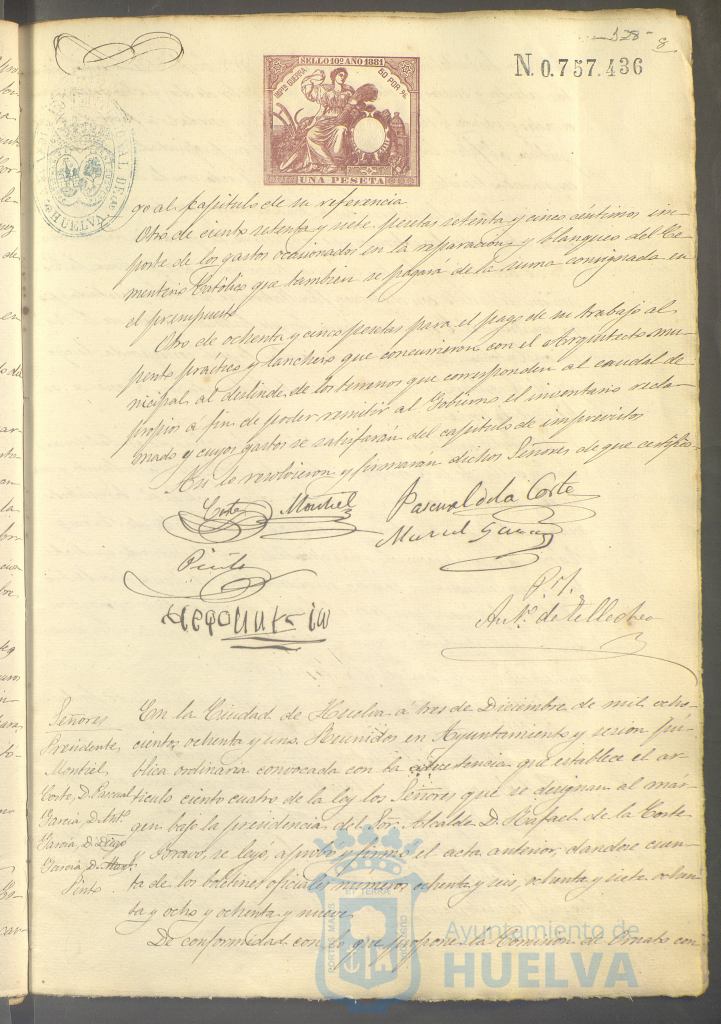 128
8
SELLO 10º AÑO 1881
IMPTO GUERRA
50 POR %
UNA PESETA
N. 0.757.436
HUELVA
go al Capitulo de su referencia
Otro de ciento setenta y siete pesetas setenta y cinco céntimos im-
porte de los gastos ocasionados en la reparacion y blanqueo del Ce-
menterio Católico que tambien se pagará de la suma consignada en
el presupuesto
Otro de ochenta y cinco pesetas para el pago de su trabajo al
perito práctico y lanchero que concurrieron con el Arquitecto mu-
nicipal al deslinde de los terrenos que corresponden al caudal de
propios á fin de poder remitir al Gobierno el inventario recla-
mado y cuyos gastos se satisfarán del capitulo de imprevistos
Asi lo resolvieron y firmarán dichos Señores de que certifico
Corte Montiel Pascual de la Corte
Manuel Garcia
Pinto
P. I.
Antº. de
Señores
Presidente
Montiel
Corte, D. Pascual
Garcia, D. Antº.
Garcia, D. Diego
Garcia, D.
Pinto
En la Ciudad de Huelva á tres de Diciembre de mil ocho-
cientos ochenta y uno. Reunidos en Ayuntamiento y sesion pú-
blica ordinaria convocada con la que establece el ar-
ticulo ciento cuatro de la ley los Señores que se designan al már-
gen bajo la presidencia del Sor. Alcalde D. Rafael de la Corte
y Bravo, se leyó, aprobó y firmó el acta anterior, dandose cuen-
ta de los boletines oficiales números ochenta y seis, ochenta y siete ochen-
ta y ocho y ochenta y nueve
De conformidad con lo que propone la Comision de Ornato con-
Ayuntamiento de
HUELVA